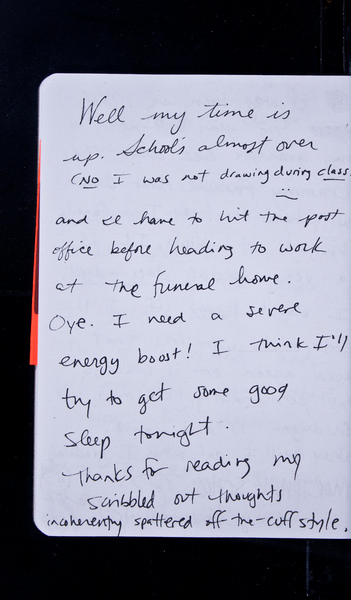 Well my time is
up. Schools almost over
(NO I was not drawing during class.
:)
and I'll have to hit the post
office before heading to work
at the funeral home.
Oye. I need a severe
energy boost! I think I'll
try to get some good
sleep tonight.
Thanks for reading my
scribbled out thoughts
incoherently spattered off-the-cuff style.